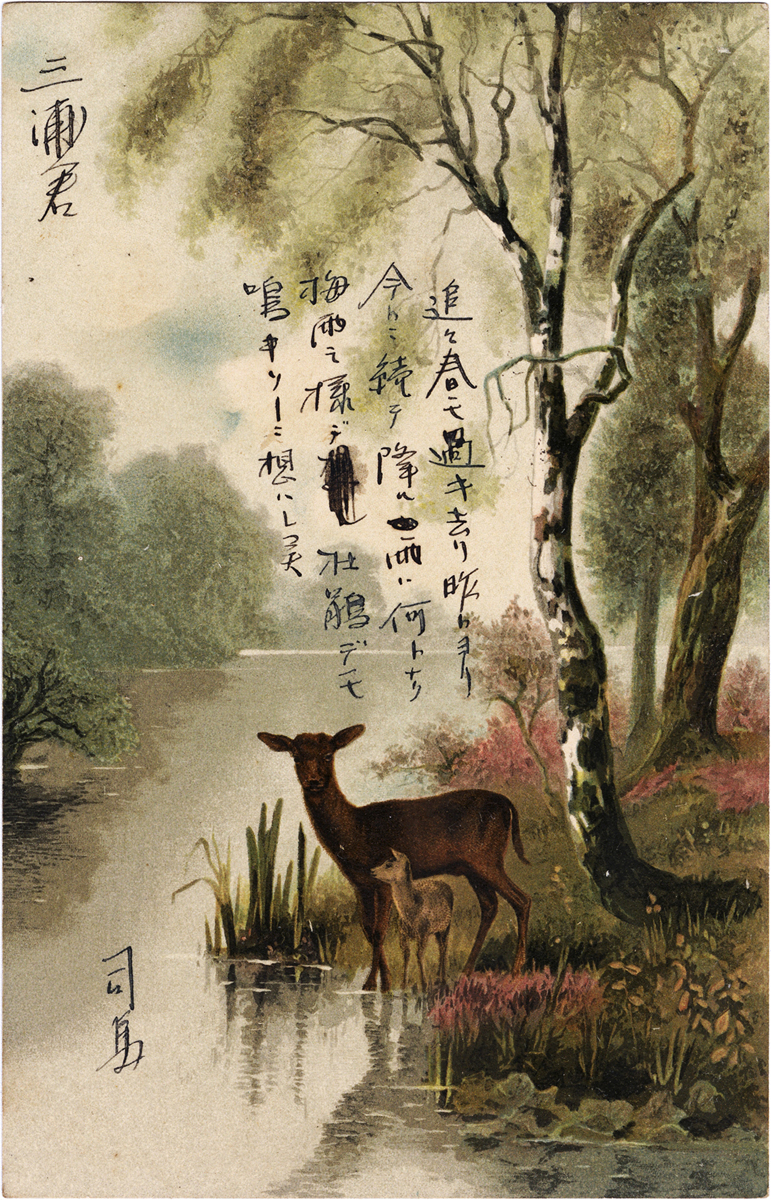 追々春モ過キ去リ昨日ヨリ
今日ニ続テ降ル雨ハ何トナク
梅雨之様デ杜鵑デモ
鳴キソーニ想ハレ
三浦君
司馬